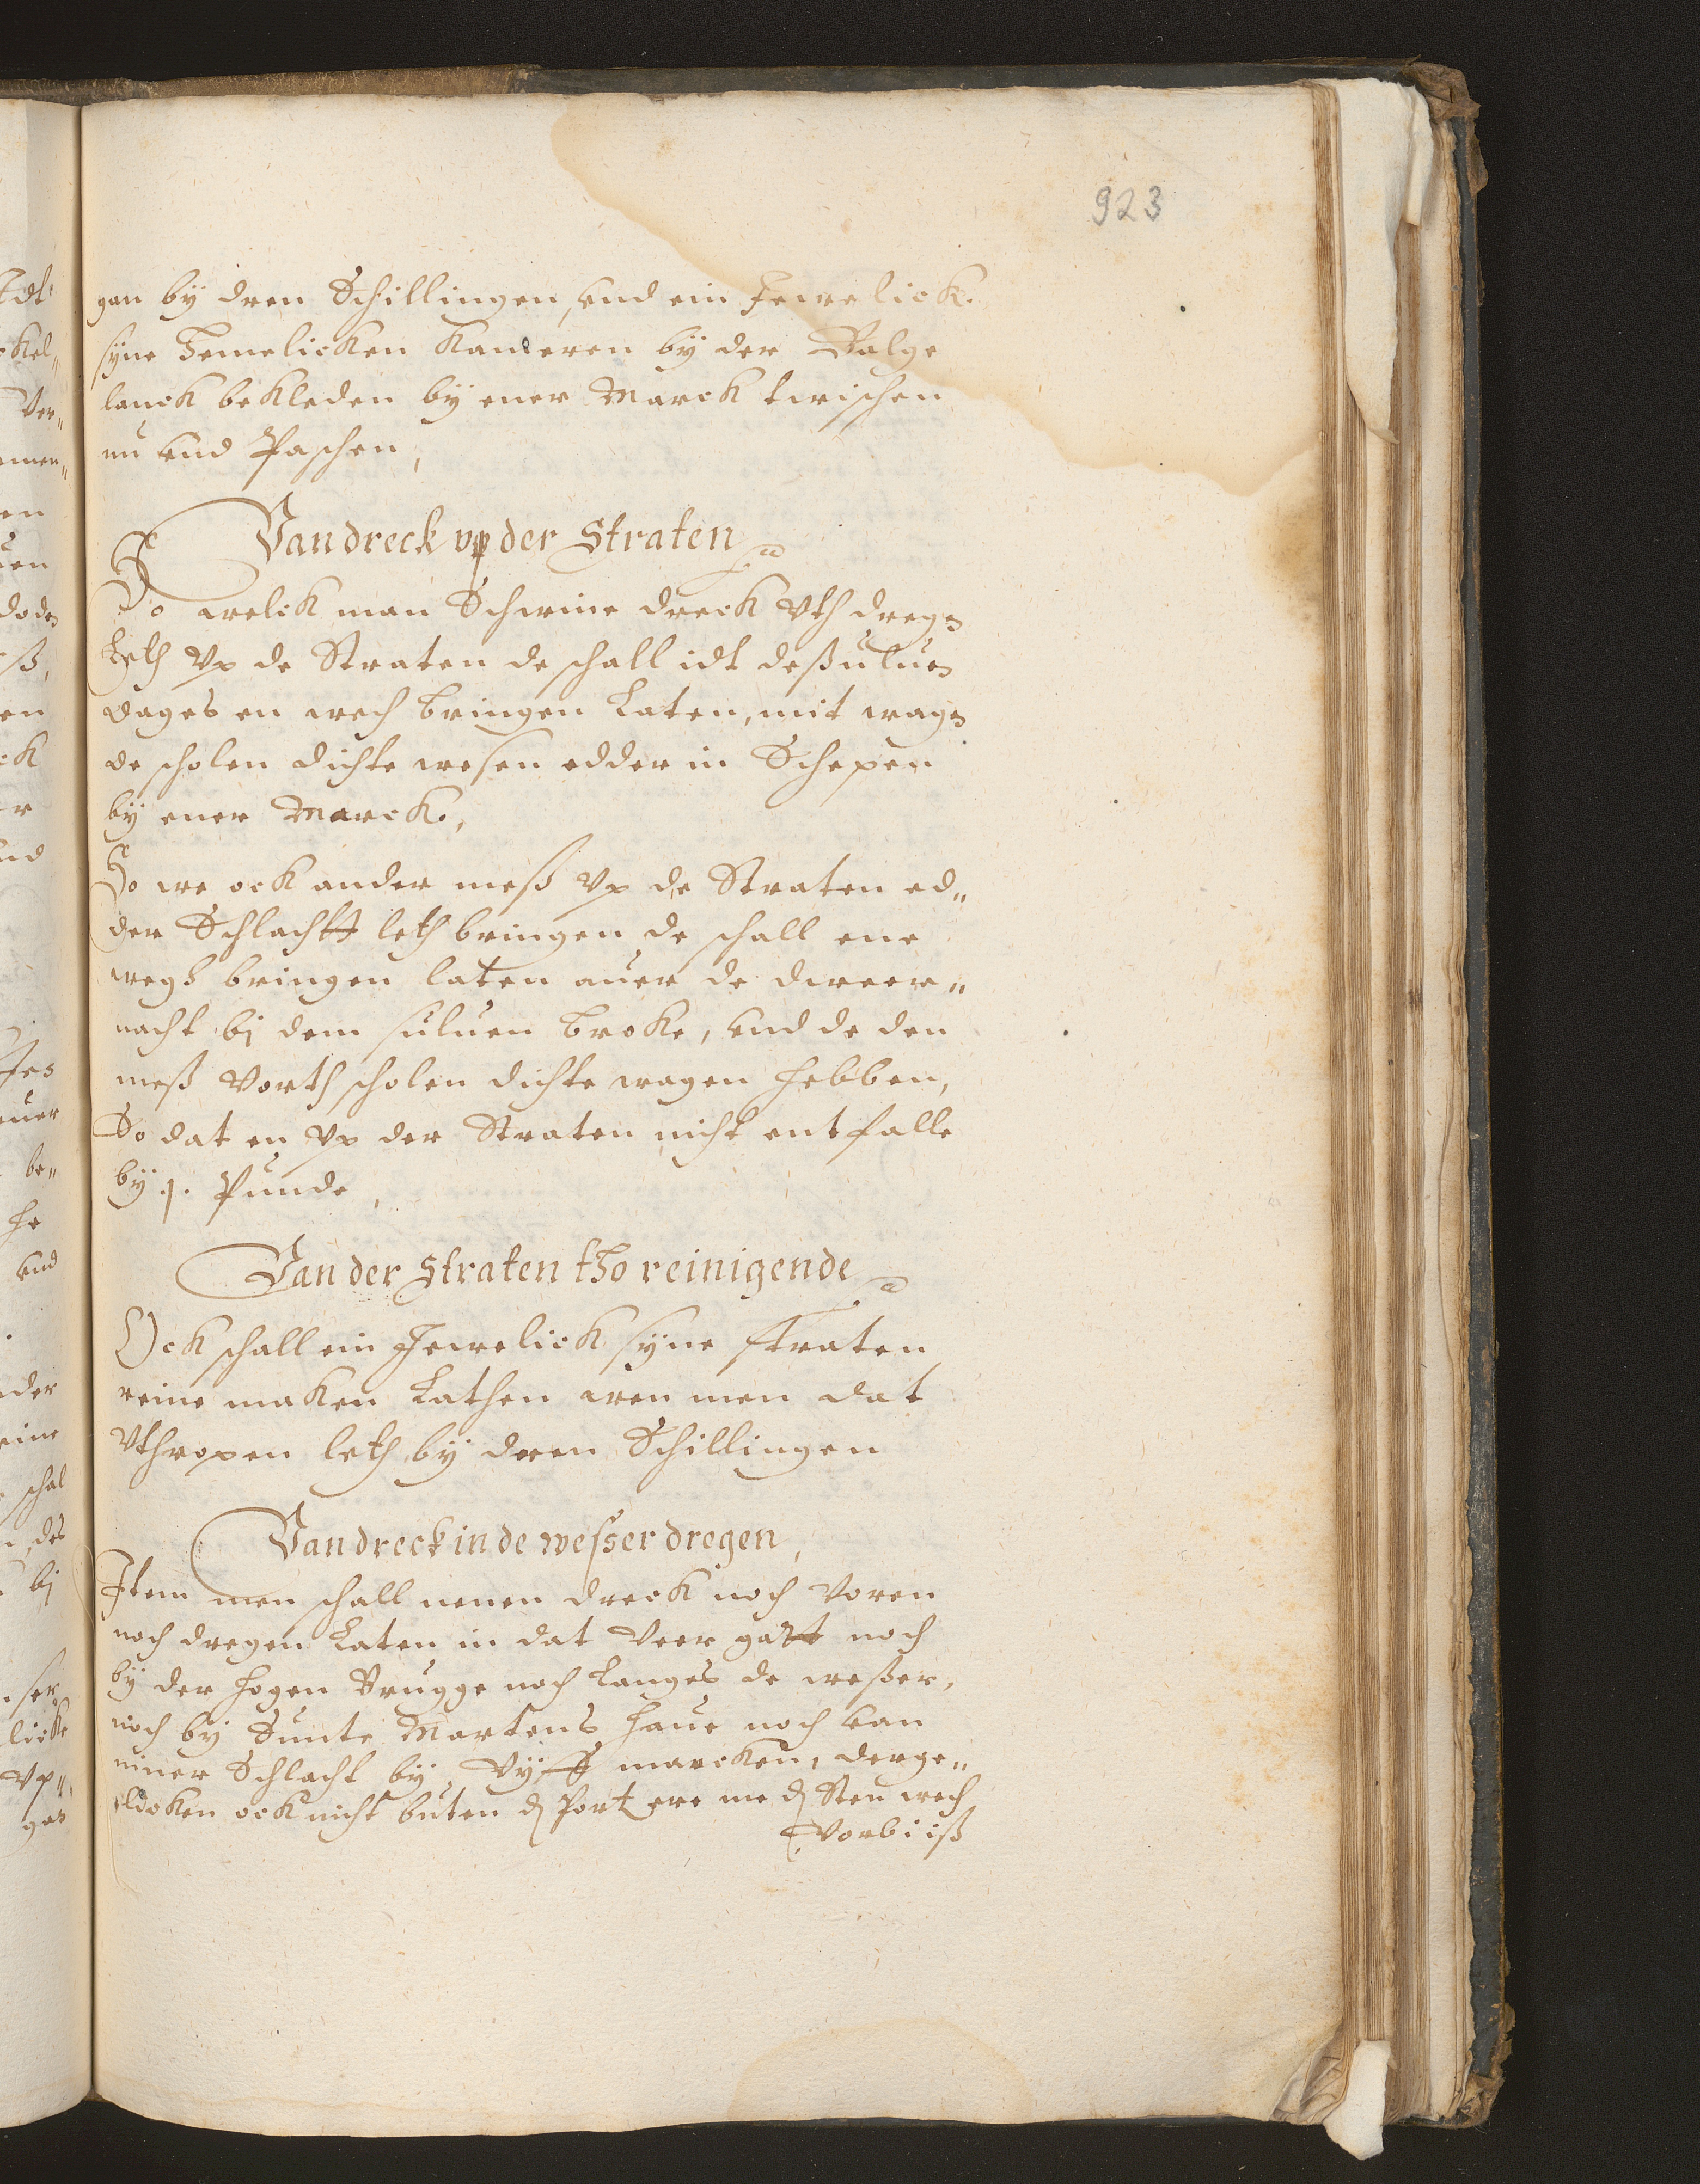 923
gan by dren Schillingen, und ein Jewelick
syne Hemelicken Kameren by der Balge
lanck bekleden by ener Marck twischen
nu und Paschen,
Van dreck vp der Straten
So welck man Schwine dreck vth dregen
Leth vp de Straten de schall idt deßuluen
dages en wech bringen Laten, mit wagen
de scholen dichte wesen edder in Schepen
by ener Marck.,
So we ock ander meß vp de Straten ed„
der Schlachtt leth bringen de schall ene
wegh bringen laten auer de dweer„
nacht bj dem suluen broke, und de den
meß vorth scholen dichte wagen hebben,
So dat en vp der Straten nicht entfalle
by j. Punde,
Van der Straten tho reinigende
Ock schall ein Jewelick syne straten
reine maken Lathen wen men dat
Vthropen leth by dreen Schillingen
Van dreck in de wesser dregen,
Item men schall nenen dreck noch voren
noch dregen Laten in dat veer gatt noch
by der hogen Brugge noch Langes de weßer,
noch by Sunte Martens haue noch van
niner Schlacht by vyff marcken, derge„
licken ock nicht buten der Port ere me den Sten wech
vorbi iß